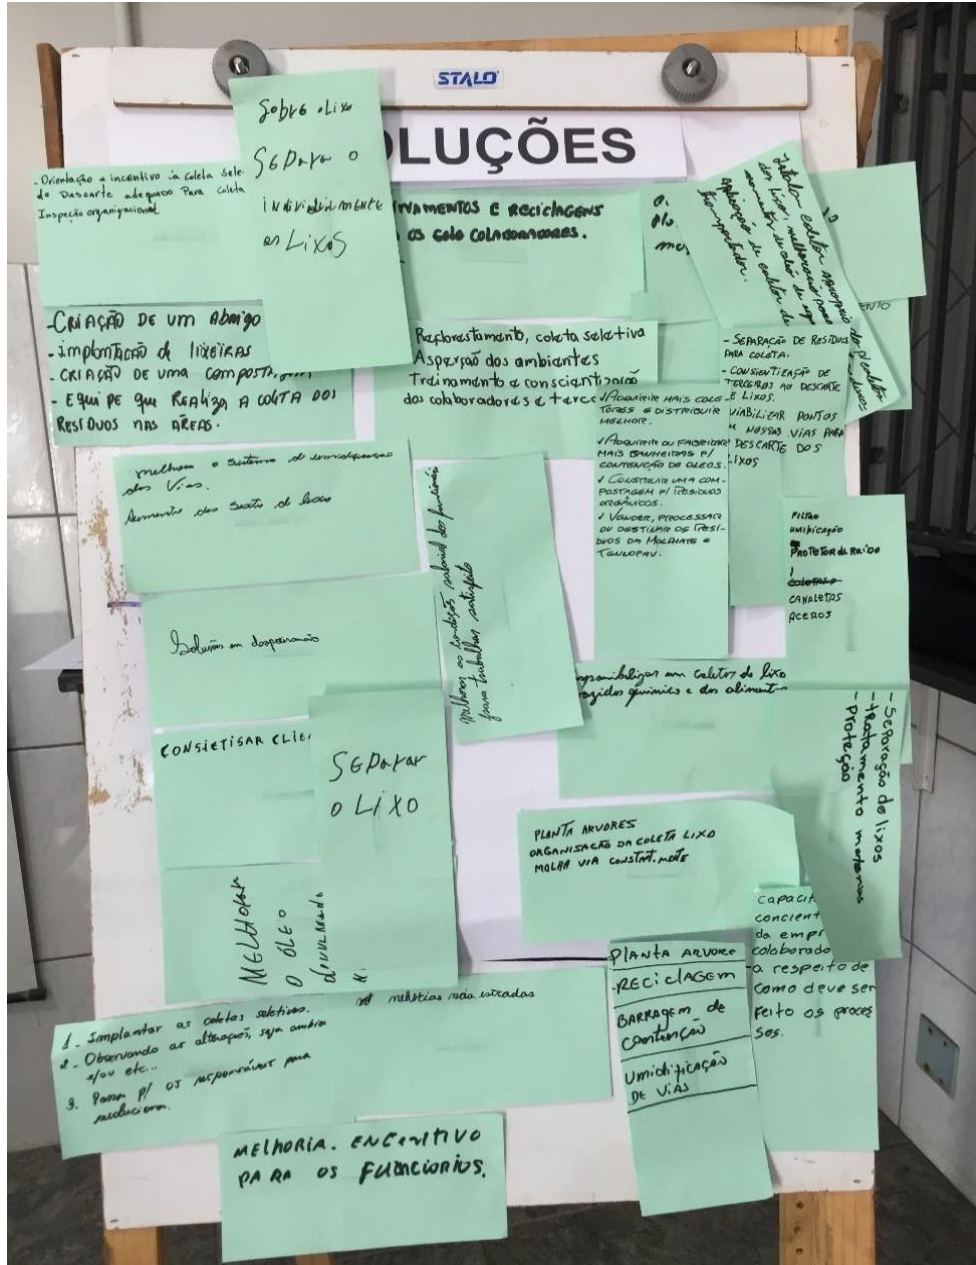 STALO
LUÇÕES
Sobre o Lixo
SEParar o
individualmente
os Lixos
- Orientação e incentivo à coleta sele
do Descarte adequado Para coleta
Inspeção organizacional
NAMENTOS E RECICLAGENS
OS COLO COLABORADORES.
- CRIAÇÃO DE UM Abrigo
- implantação de lixeiras
- CRIAÇÃO DE UMA COMPOSTA
- EQUIPE que REALIZA A COLETA DOS
RESÍDUOS NAS ÁREAS.
Reflorestamento, coleta seletiva
Asperção dos ambientes
Treinamento e conscientização
dos colaboradores e terce
- SEPARAÇÃO DE RESÍDUOS
PARA COLETA.
- CONSIENTIZAÇÃO DE
TERCEIROS AO DESCARTE
E LIXOS.
VIABILIZAR PONTOS
NOSSAS VIAS PARA
DESCARTE DOS
LIXOS
✓ ADQUIRIR MAIS COLE-
TORES E DISTRIBUIR
MELHOR.
✓ ADQUIRIR OU FABRICAR
MAIS BANHEIRAS P/
CONTENÇÃO DE ÓLEOS.
✓ CONSTRUIR UMA COM-
POSTAGEM P/ RESÍDUOS
ORGÂNICOS.
✓ VENDER, PROCESSAR
OU DESTINAR OS RESÍ-
DUOS DA
melhora o sistema de umidificação
das Vias.
Aumento dos
Melhorar as condições salarial dos funcionários
para trabalhar satisfeito
FILTRO
UMIDICAÇÃO
PROTETOR de RUIDO
CANALETAS
ACEROS
Solução em
um coletor de lixo
químico e dos
- Separação de lixos
- tratamento materias
- Proteção
CONSIETISAR CLIE
SEParar
o LIXO
PLANTA ARVORES
ORGANISAÇÃO DA COLETA LIXO
MOLHA VIA CONSTAT.MENTE
MELHORAR
O OLEO
Capacit
concient
da empr
colaborado
a respeito de
como deve ser
feito os proces
sos.
PLANTA ARVORE
-RECICLAGEM
BARRAGEM de
CONTENÇÃO
Umidificação
DE VIAS
1. Implantar as coletas seletivas.
2. Observando as alterações, seja
e/ou etc...
3. Passar p/ os responsáveis para
solucionar.
melhorias nas estradas
MELHORIA. ENCENTIVO
PARA OS FUNCIORIOS.